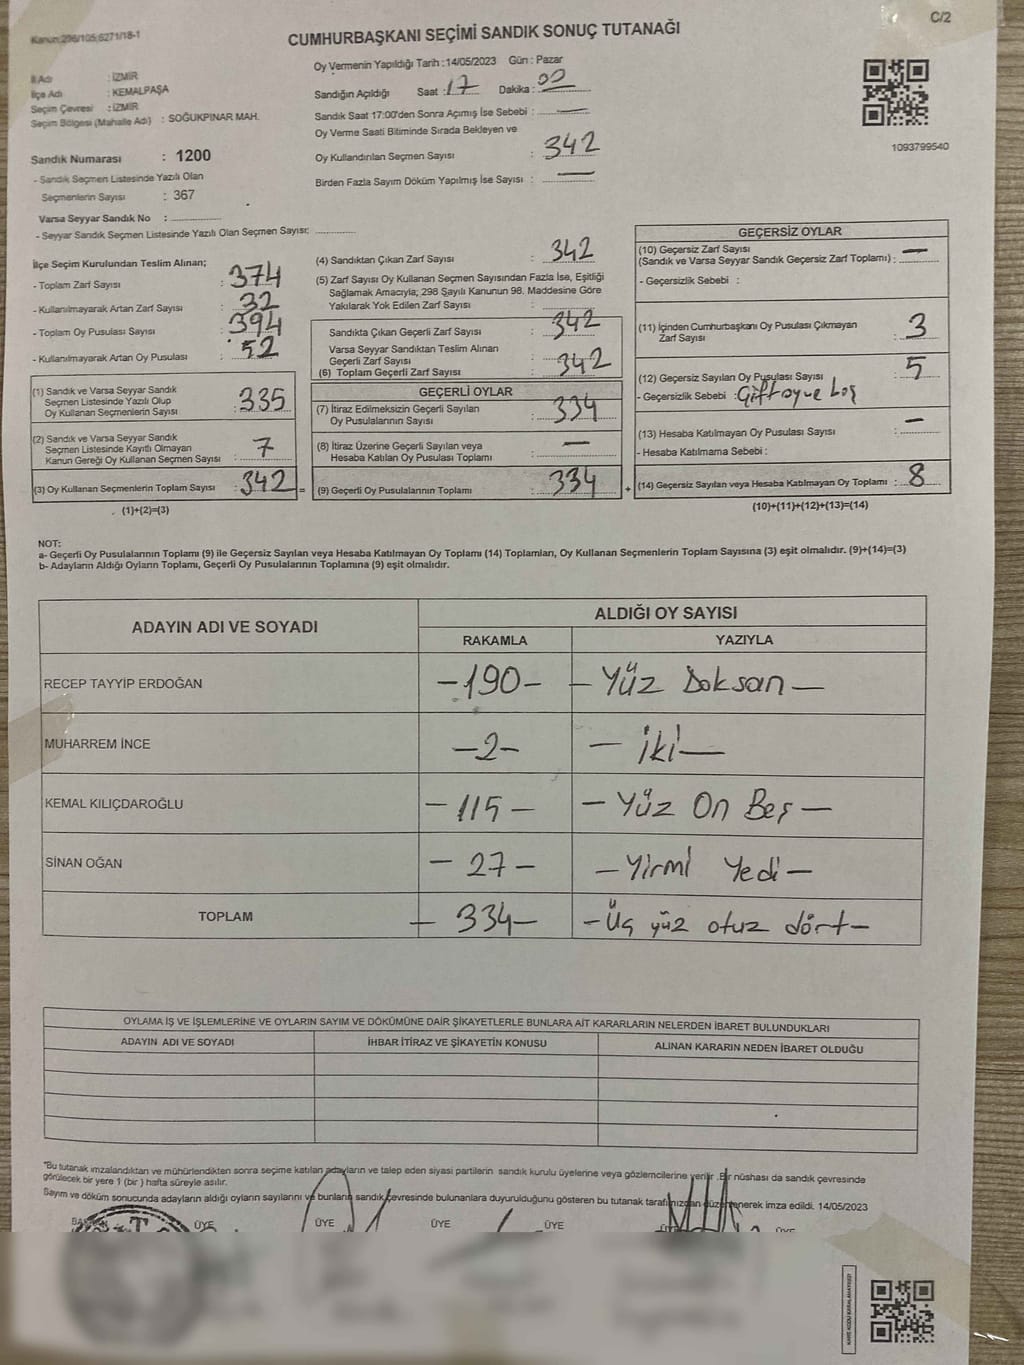 Kanun:298/105;6271/18-1
C/2
CUMHURBAŞKANI SEÇİMİ SANDIK SONUÇ TUTANAĞI
Oy Vermenin Yapıldığı Tarih :14/05/2023 Gün : Pazar
İl Adı : İZMİR
İlçe Adı : KEMALPAŞA
Seçim Çevresi : İZMİR
Seçim Bölgesi (Mahalle Adı) : SOĞUKPINAR MAH.
Sandık Numarası : 1200
- Sandık Seçmen Listesinde Yazılı Olan
Seçmenlerin Sayısı : 367
Varsa Seyyar Sandık No :
- Seyyar Sandık Seçmen Listesinde Yazılı Olan Seçmen Sayısı:
Sandığın Açıldığı Saat : 17 Dakika : 00
Sandık Saat 17:00'den Sonra Açımış İse Sebebi : —
Oy Verme Saati Bitiminde Sırada Bekleyen ve
Oy Kullandırılan Seçmen Sayısı : 342
Birden Fazla Sayım Döküm Yapılmış İse Sayısı : —
1093799540
İlçe Seçim Kurulundan Teslim Alınan;
- Toplam Zarf Sayısı : 374
- Kullanılmayarak Artan Zarf Sayısı : 32
- Toplam Oy Pusulası Sayısı : 394
- Kullanılmayarak Artan Oy Pusulası : 52
(1) Sandık ve Varsa Seyyar Sandık
Seçmen Listesinde Yazılı Olup
Oy Kullanan Seçmenlerin Sayısı : 335
(2) Sandık ve Varsa Seyyar Sandık
Seçmen Listesinde Kayıtlı Olmayan
Kanun Gereği Oy Kullanan Seçmen Sayısı : 7
(3) Oy Kullanan Seçmenlerin Toplam Sayısı : 342 =
(1)+(2)=(3)
(4) Sandıktan Çıkan Zarf Sayısı : 342
(5) Zarf Sayısı Oy Kullanan Seçmen Sayısından Fazla İse, Eşitliği
Sağlamak Amacıyla; 298 Sayılı Kanunun 98. Maddesine Göre
Yakılarak Yok Edilen Zarf Sayısı :
Sandıkta Çıkan Geçerli Zarf Sayısı : 342
Varsa Seyyar Sandıktan Teslim Alınan
Geçerli Zarf Sayısı :
(6) Toplam Geçerli Zarf Sayısı : 342
GEÇERLİ OYLAR
(7) İtiraz Edilmeksizin Geçerli Sayılan
Oy Pusulalarının Sayısı : 334
(8) İtiraz Üzerine Geçerli Sayılan veya
Hesaba Katılan Oy Pusulası Toplamı : —
(9) Geçerli Oy Pusulalarının Toplamı : 334 +
GEÇERSİZ OYLAR
(10) Geçersiz Zarf Sayısı
(Sandık ve Varsa Seyyar Sandık Geçersiz Zarf Toplamı) : —
- Geçersizlik Sebebi :
(11) İçinden Cumhurbaşkanı Oy Pusulası Çıkmayan
Zarf Sayısı : 3
(12) Geçersiz Sayılan Oy Pusulası Sayısı : 5
- Geçersizlik Sebebi :
(13) Hesaba Katılmayan Oy Pusulası Sayısı : —
- Hesaba Katılmama Sebebi :
(14) Geçersiz Sayılan veya Hesaba Katılmayan Oy Toplamı : 8
(10)+(11)+(12)+(13)=(14)
NOT:
a- Geçerli Oy Pusulalarının Toplamı (9) ile Geçersiz Sayılan veya Hesaba Katılmayan Oy Toplamı (14) Toplamları, Oy Kullanan Seçmenlerin Toplam Sayısına (3) eşit olmalıdır. (9)+(14)=(3)
b- Adayların Aldığı Oyların Toplamı, Geçerli Oy Pusulalarının Toplamına (9) eşit olmalıdır.
ADAYIN ADI VE SOYADI ALDIĞI OY SAYISI
RAKAMLA YAZIYLA
RECEP TAYYİP ERDOĞAN -190- - Yüz Doksan -
MUHARREM İNCE -2- - İki -
KEMAL KILIÇDAROĞLU - 115 - - Yüz On Beş -
SİNAN OĞAN - 27 - - Yirmi Yedi -
TOPLAM - 334 - - Üç yüz otuz dört -
OYLAMA İŞ VE İŞLEMLERİNE VE OYLARIN SAYIM VE DÖKÜMÜNE DAİR ŞİKAYETLERLE BUNLARA AİT KARARLARIN NELERDEN İBARET BULUNDUKLARI
ADAYIN ADI VE SOYADI İHBAR İTİRAZ VE ŞİKAYETİN KONUSU ALINAN KARARIN NEDEN İBARET OLDUĞU
*Bu tutanak imzalandıktan ve mühürlendikten sonra seçime katılan adayların ve talep eden siyasi partilerin sandık kurulu üyelerine veya gözlemcilerine verilir .Bir nüshası da sandık çevresinde
görülecek bir yere 1 (bir ) hafta süreyle asılır.
Sayım ve döküm sonucunda adayların aldığı oyların sayılarını ve bunların sandık çevresinde bulunanlara duyurulduğunu gösteren bu tutanak tarafımızdan düzenlenerek imza edildi. 14/05/2023
BAŞKAN ÜYE ÜYE ÜYE ÜYE ÜYE ÜYE